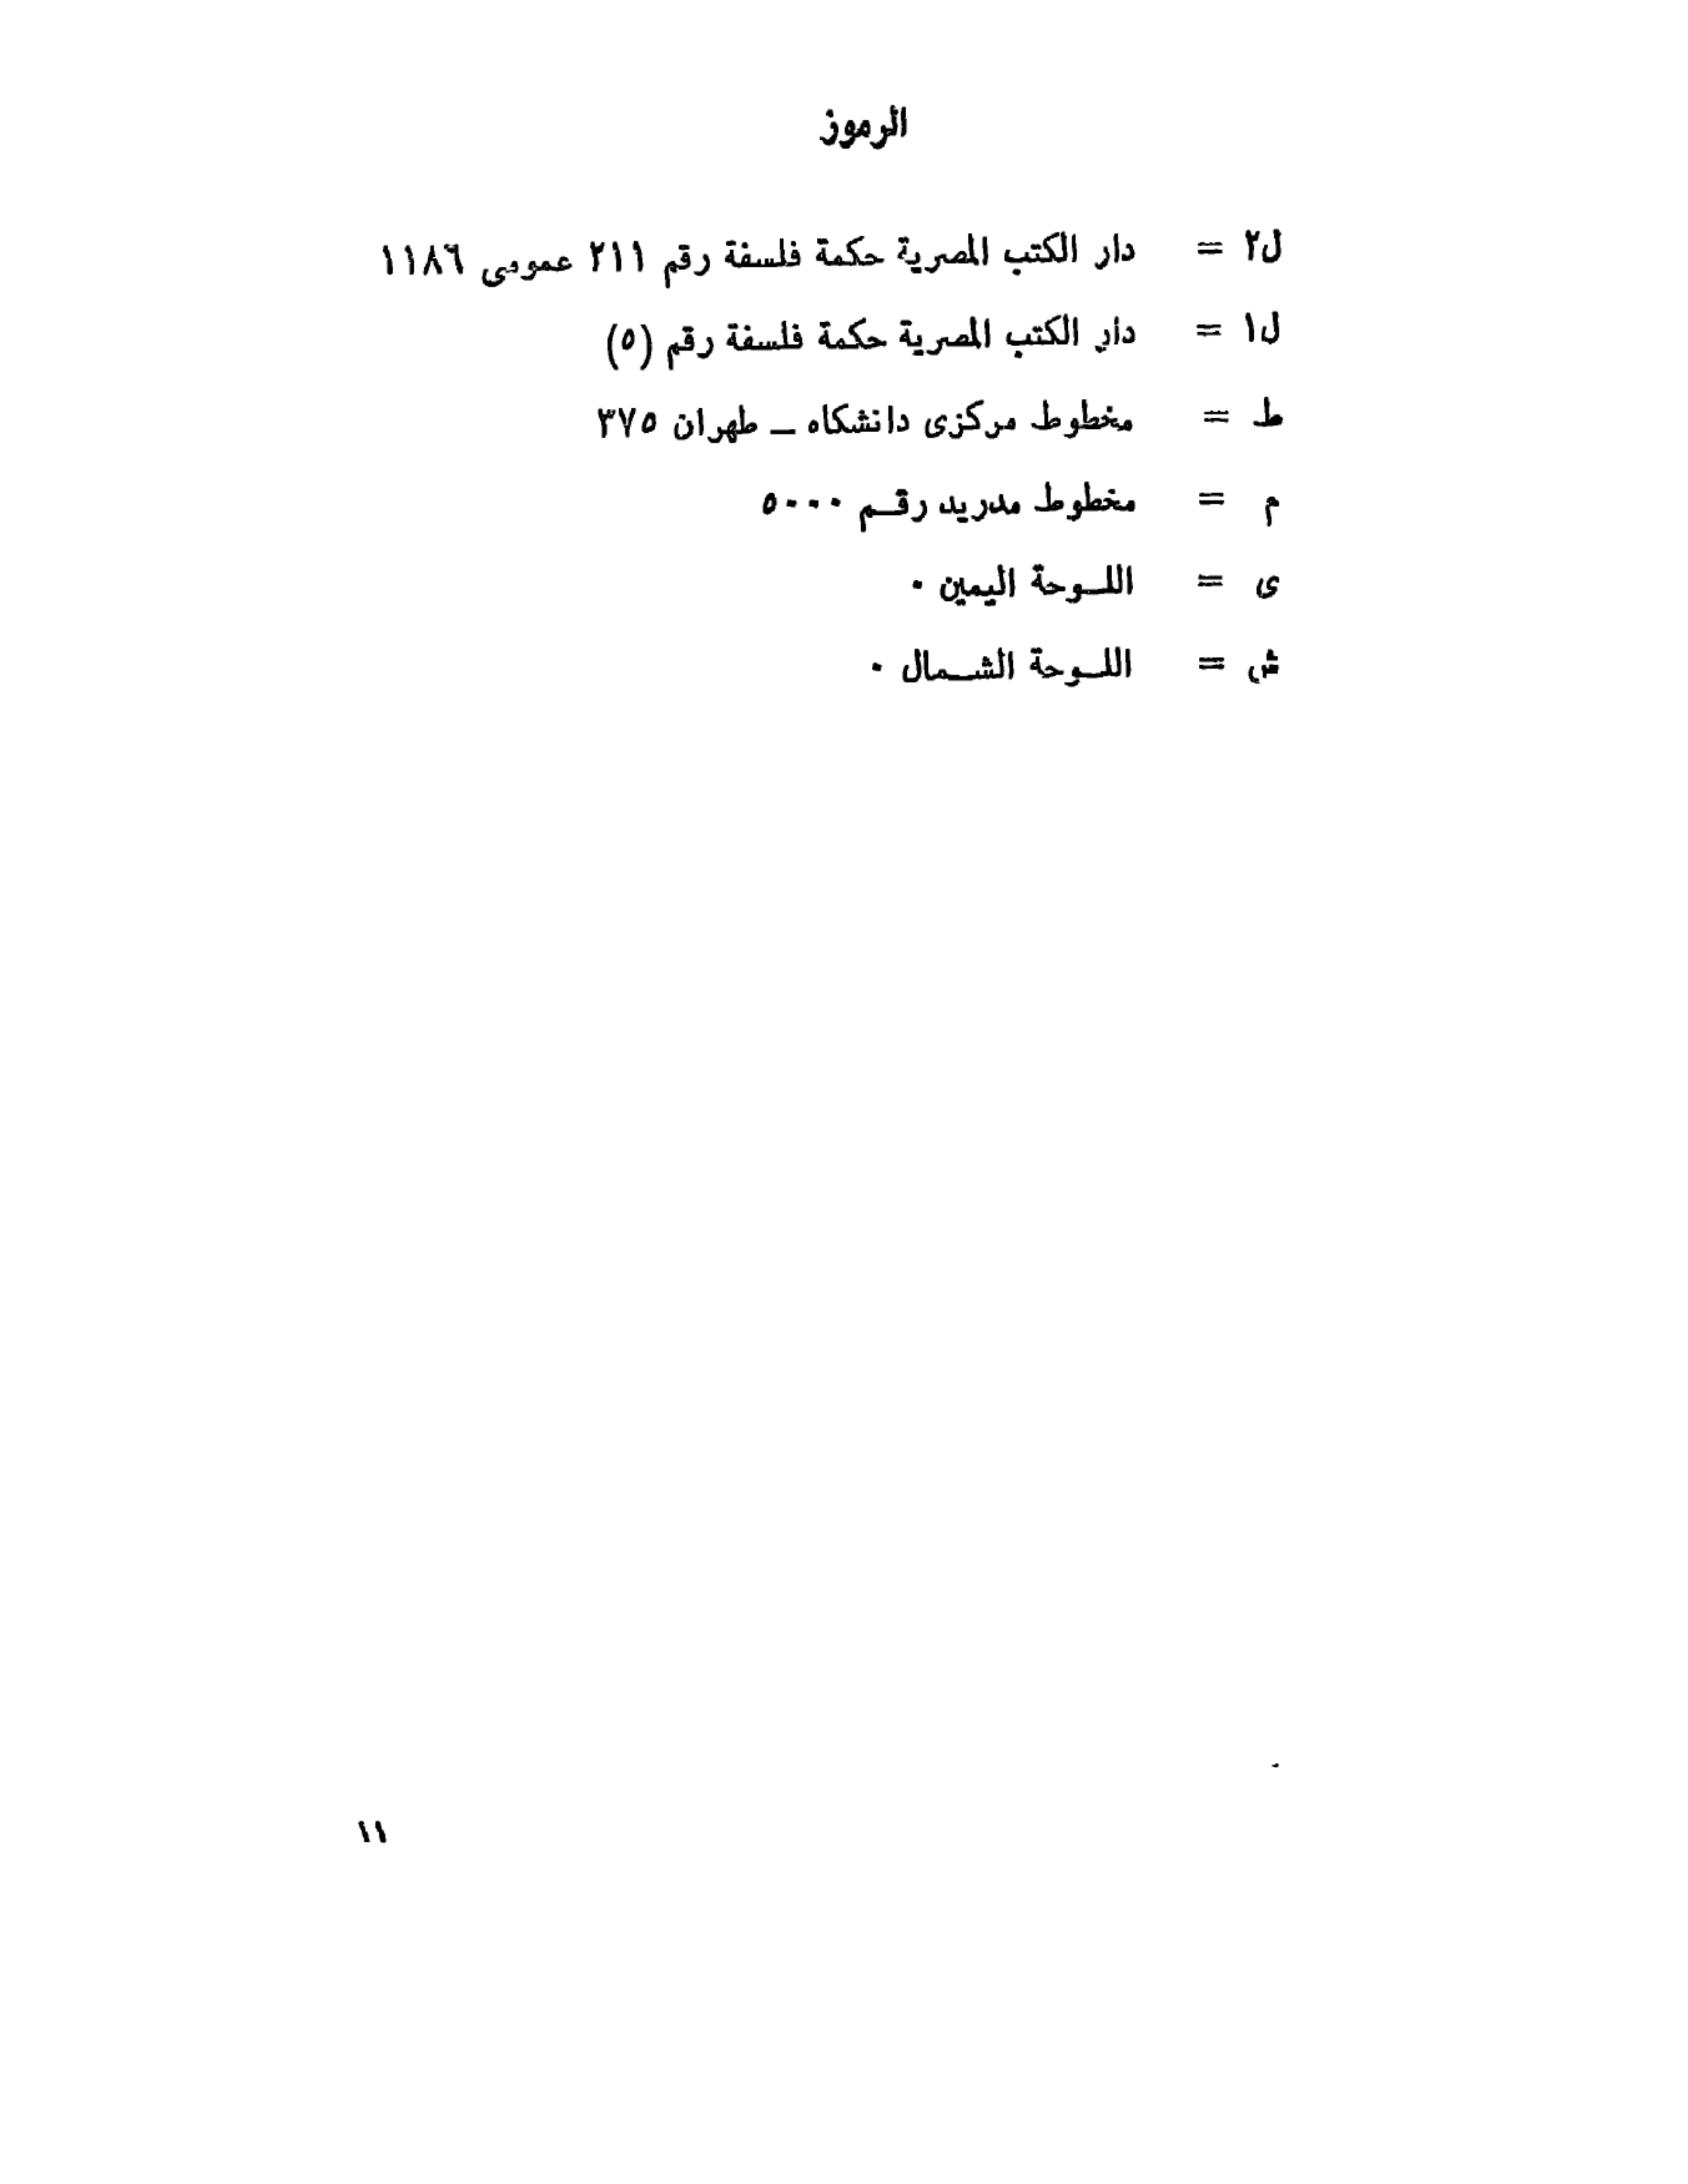 الرموز
ل٢ = دار الكتب المصرية حكمة فلسفة رقم ٢١١ عمومى ١١٨٦
ل١ = دار الكتب المصرية حكمة فلسفة رقم (٥)
ط = مخطوط مركزى دانشكاه ـ طهران ٣٧٥
م = مخطوط مدريد رقـم ٥٠٠٠
ى = اللـوحة اليمين ٠
ش = اللـوحة الشـمال ٠
١١